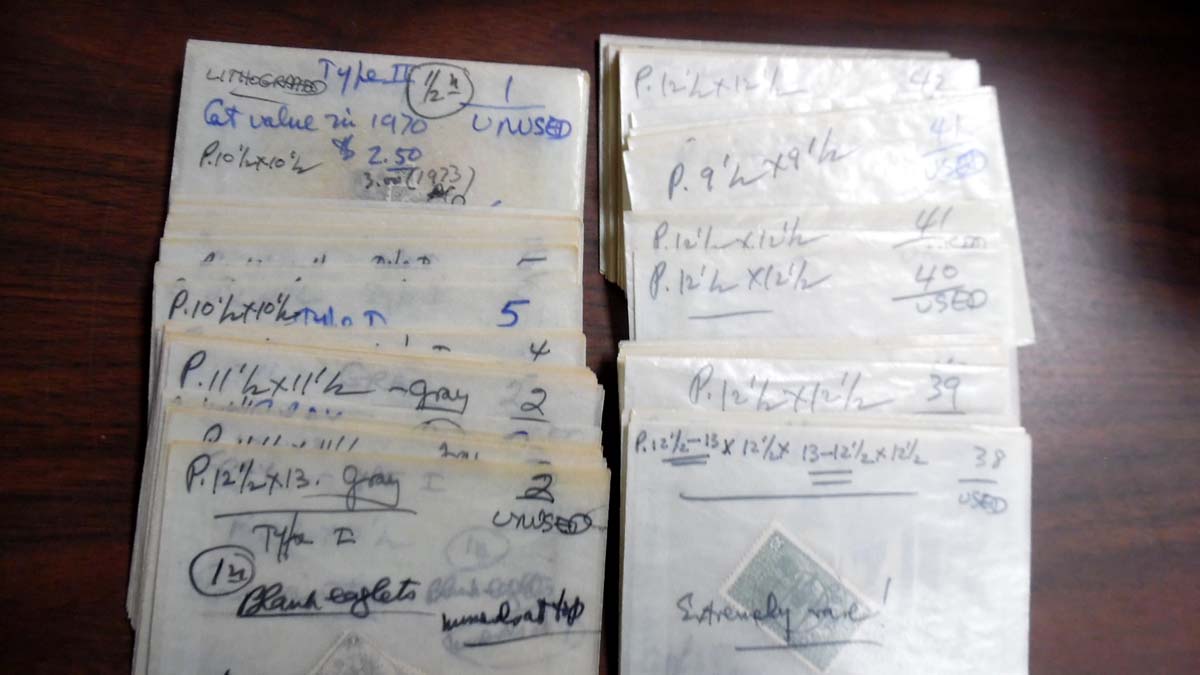 LITHOGRAPHED Type II 1/2 n 1
Cat value in 1970 UNUSED
P.10½x10½ $ 2.50
3.00 (1973)
P.10½x10½ 5
4
P.11½x11½ gray 2
P.12½x13. gray 2
UNUSED
Type I
1n
Blank eaglets
numerals at top
P.12½x12½ 42
41
P.9½x9½ USED
41
P.12½x12½
40
P.12½x12½ USED
P.12½x12½ 39
P.12½-13x12½x13-12½x12½ 38
USED
Extremely rare!